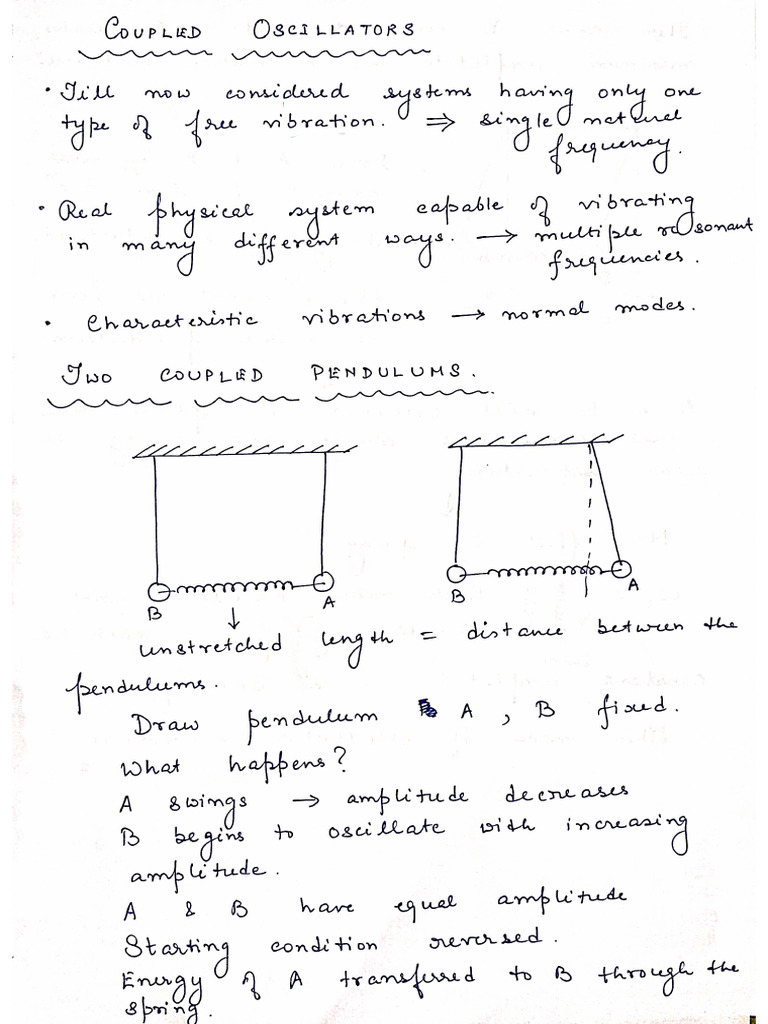 COUPLED OSCILLATORS
• Till now considered systems having only one
type of free vibration. ⇒ single natural
frequency.
• Real physical system capable of vibrating
in many different ways. → multiple resonant
frequencies.
• Characteristic vibrations → normal modes.
TWO COUPLED PENDULUMS.
B A
B A
unstretched length = distance between the
pendulums.
Draw pendulum A, B fixed.
What happens?
A swings → amplitude decreases
B begins to oscillate with increasing
amplitude.
A & B have equal amplitude
Starting condition reversed.
Energy of A transferred to B through the
spring.